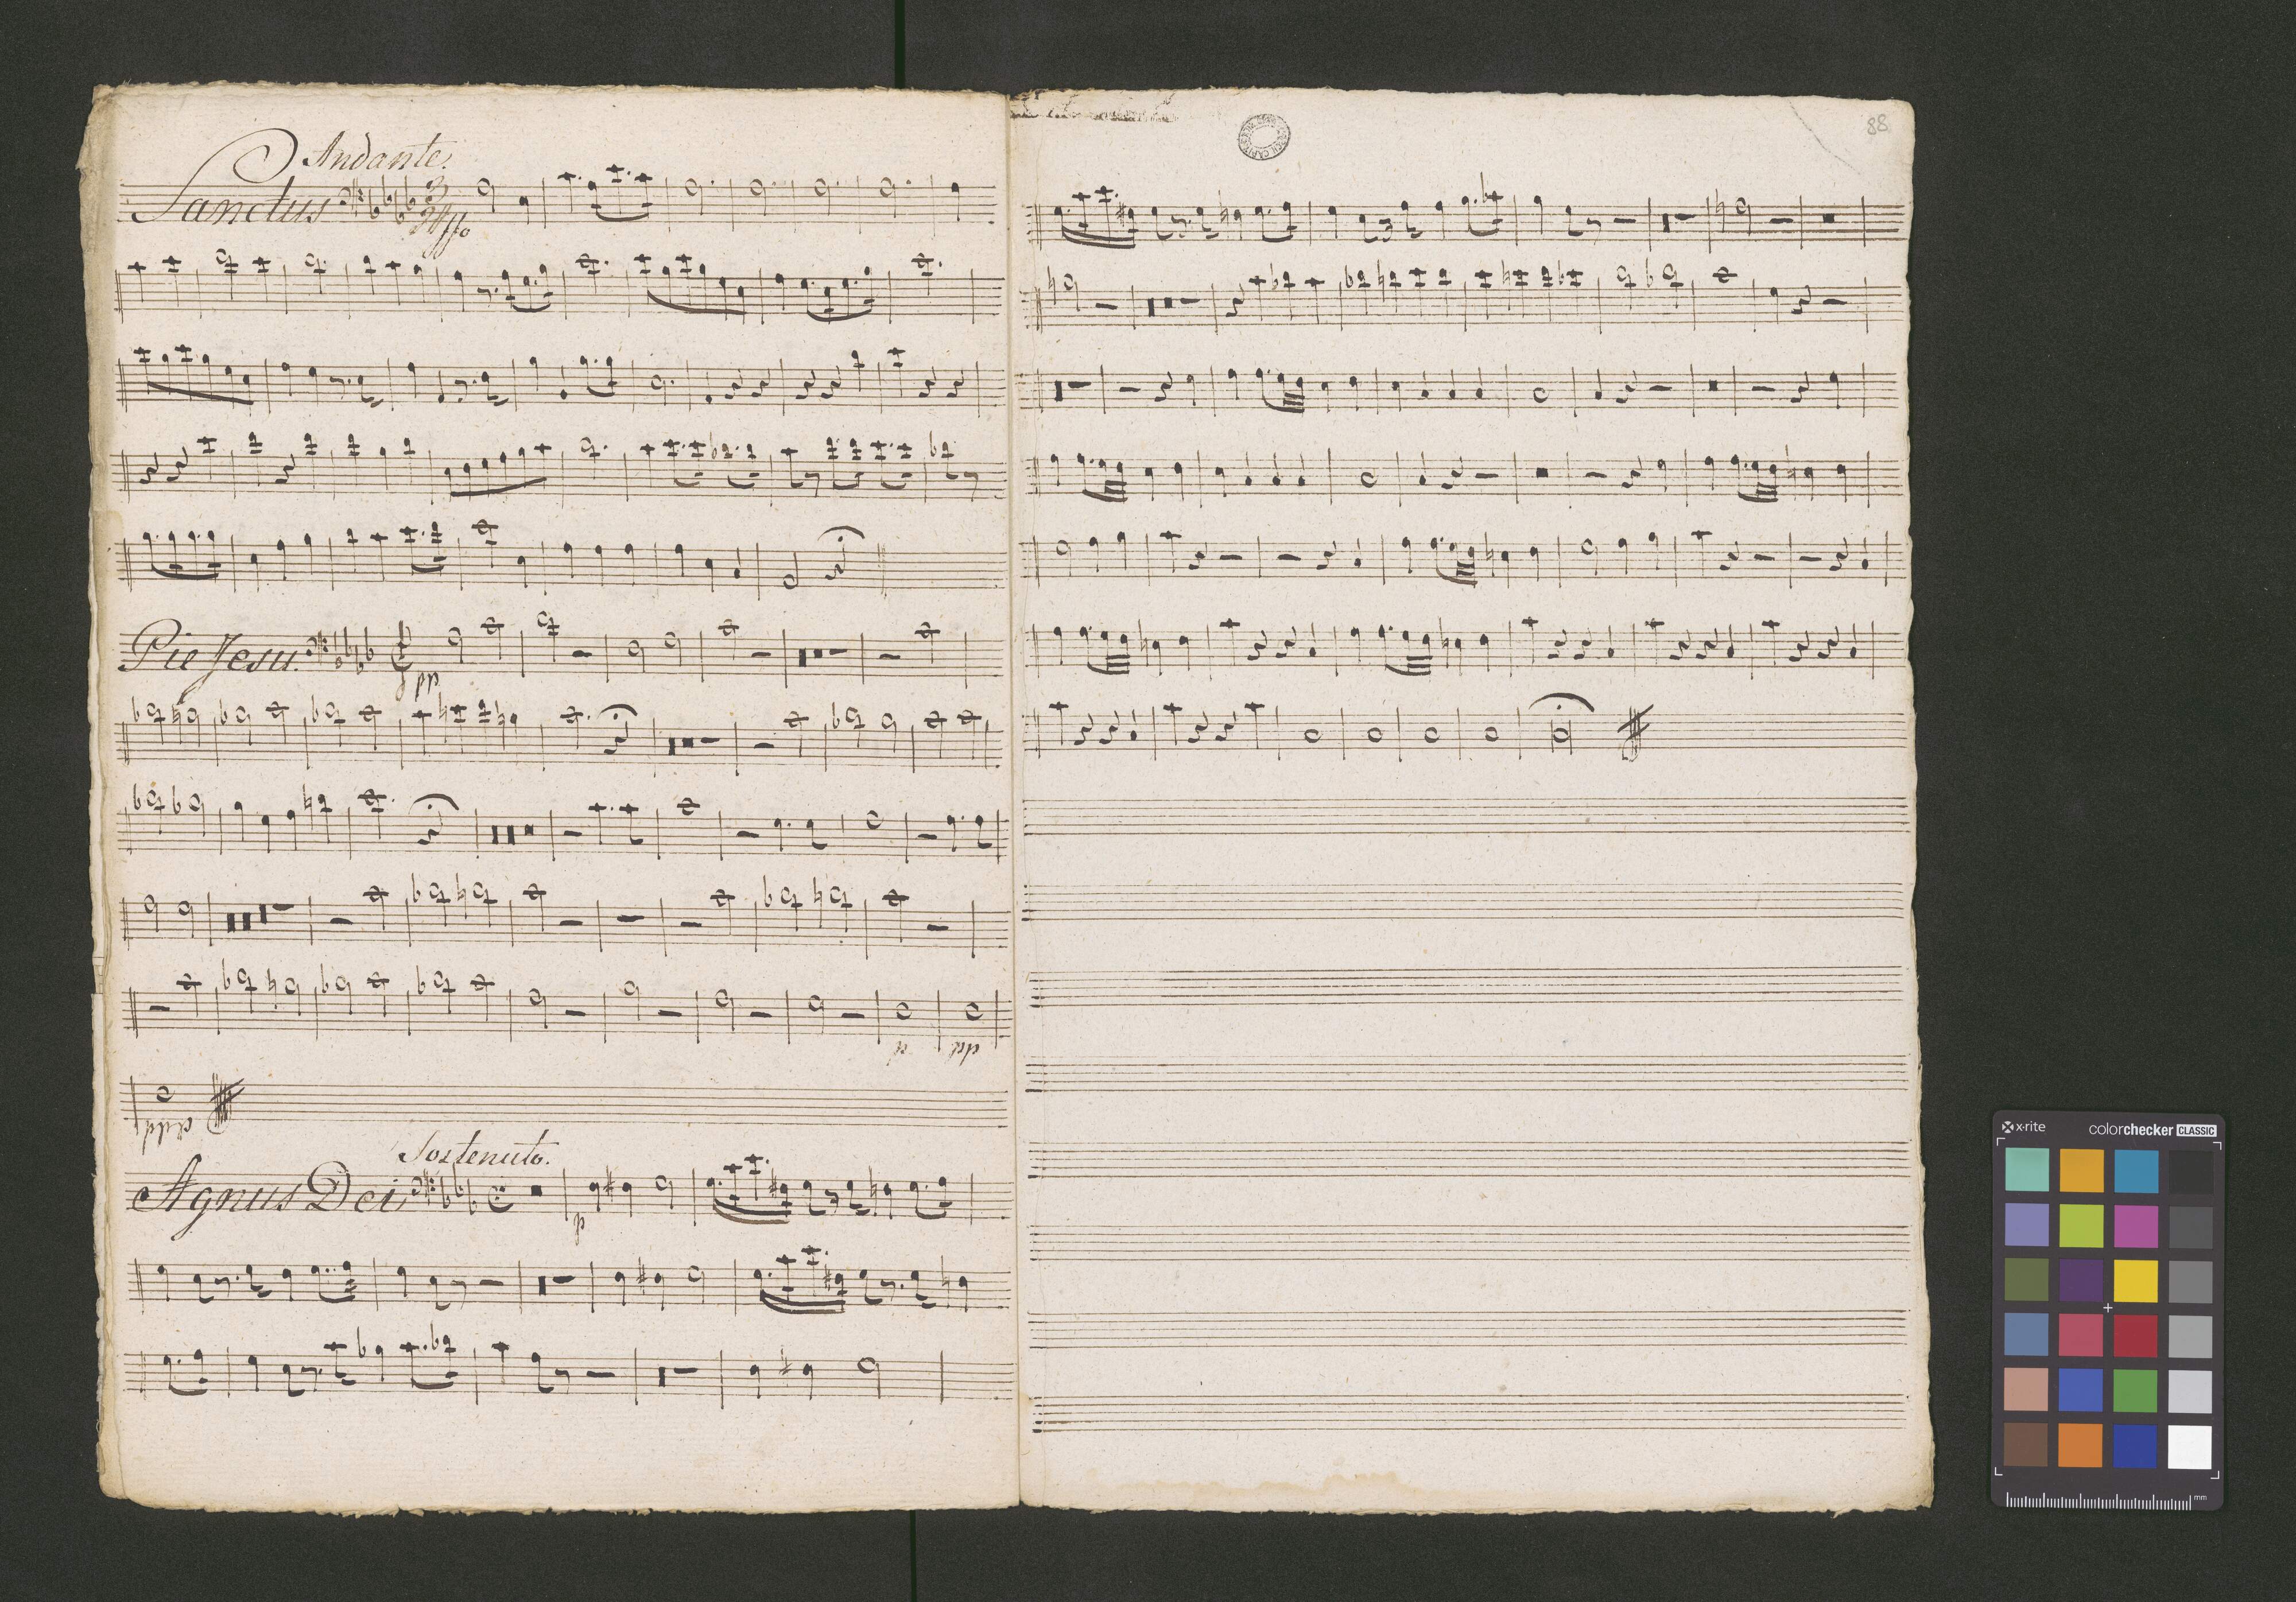 Andante.
Sanctus
3
ffo
Pie Jesu.
pp
p
pp
Sostenuto.
Agnus Dei
p
88
x-rite
colorchecker CLASSIC
mm